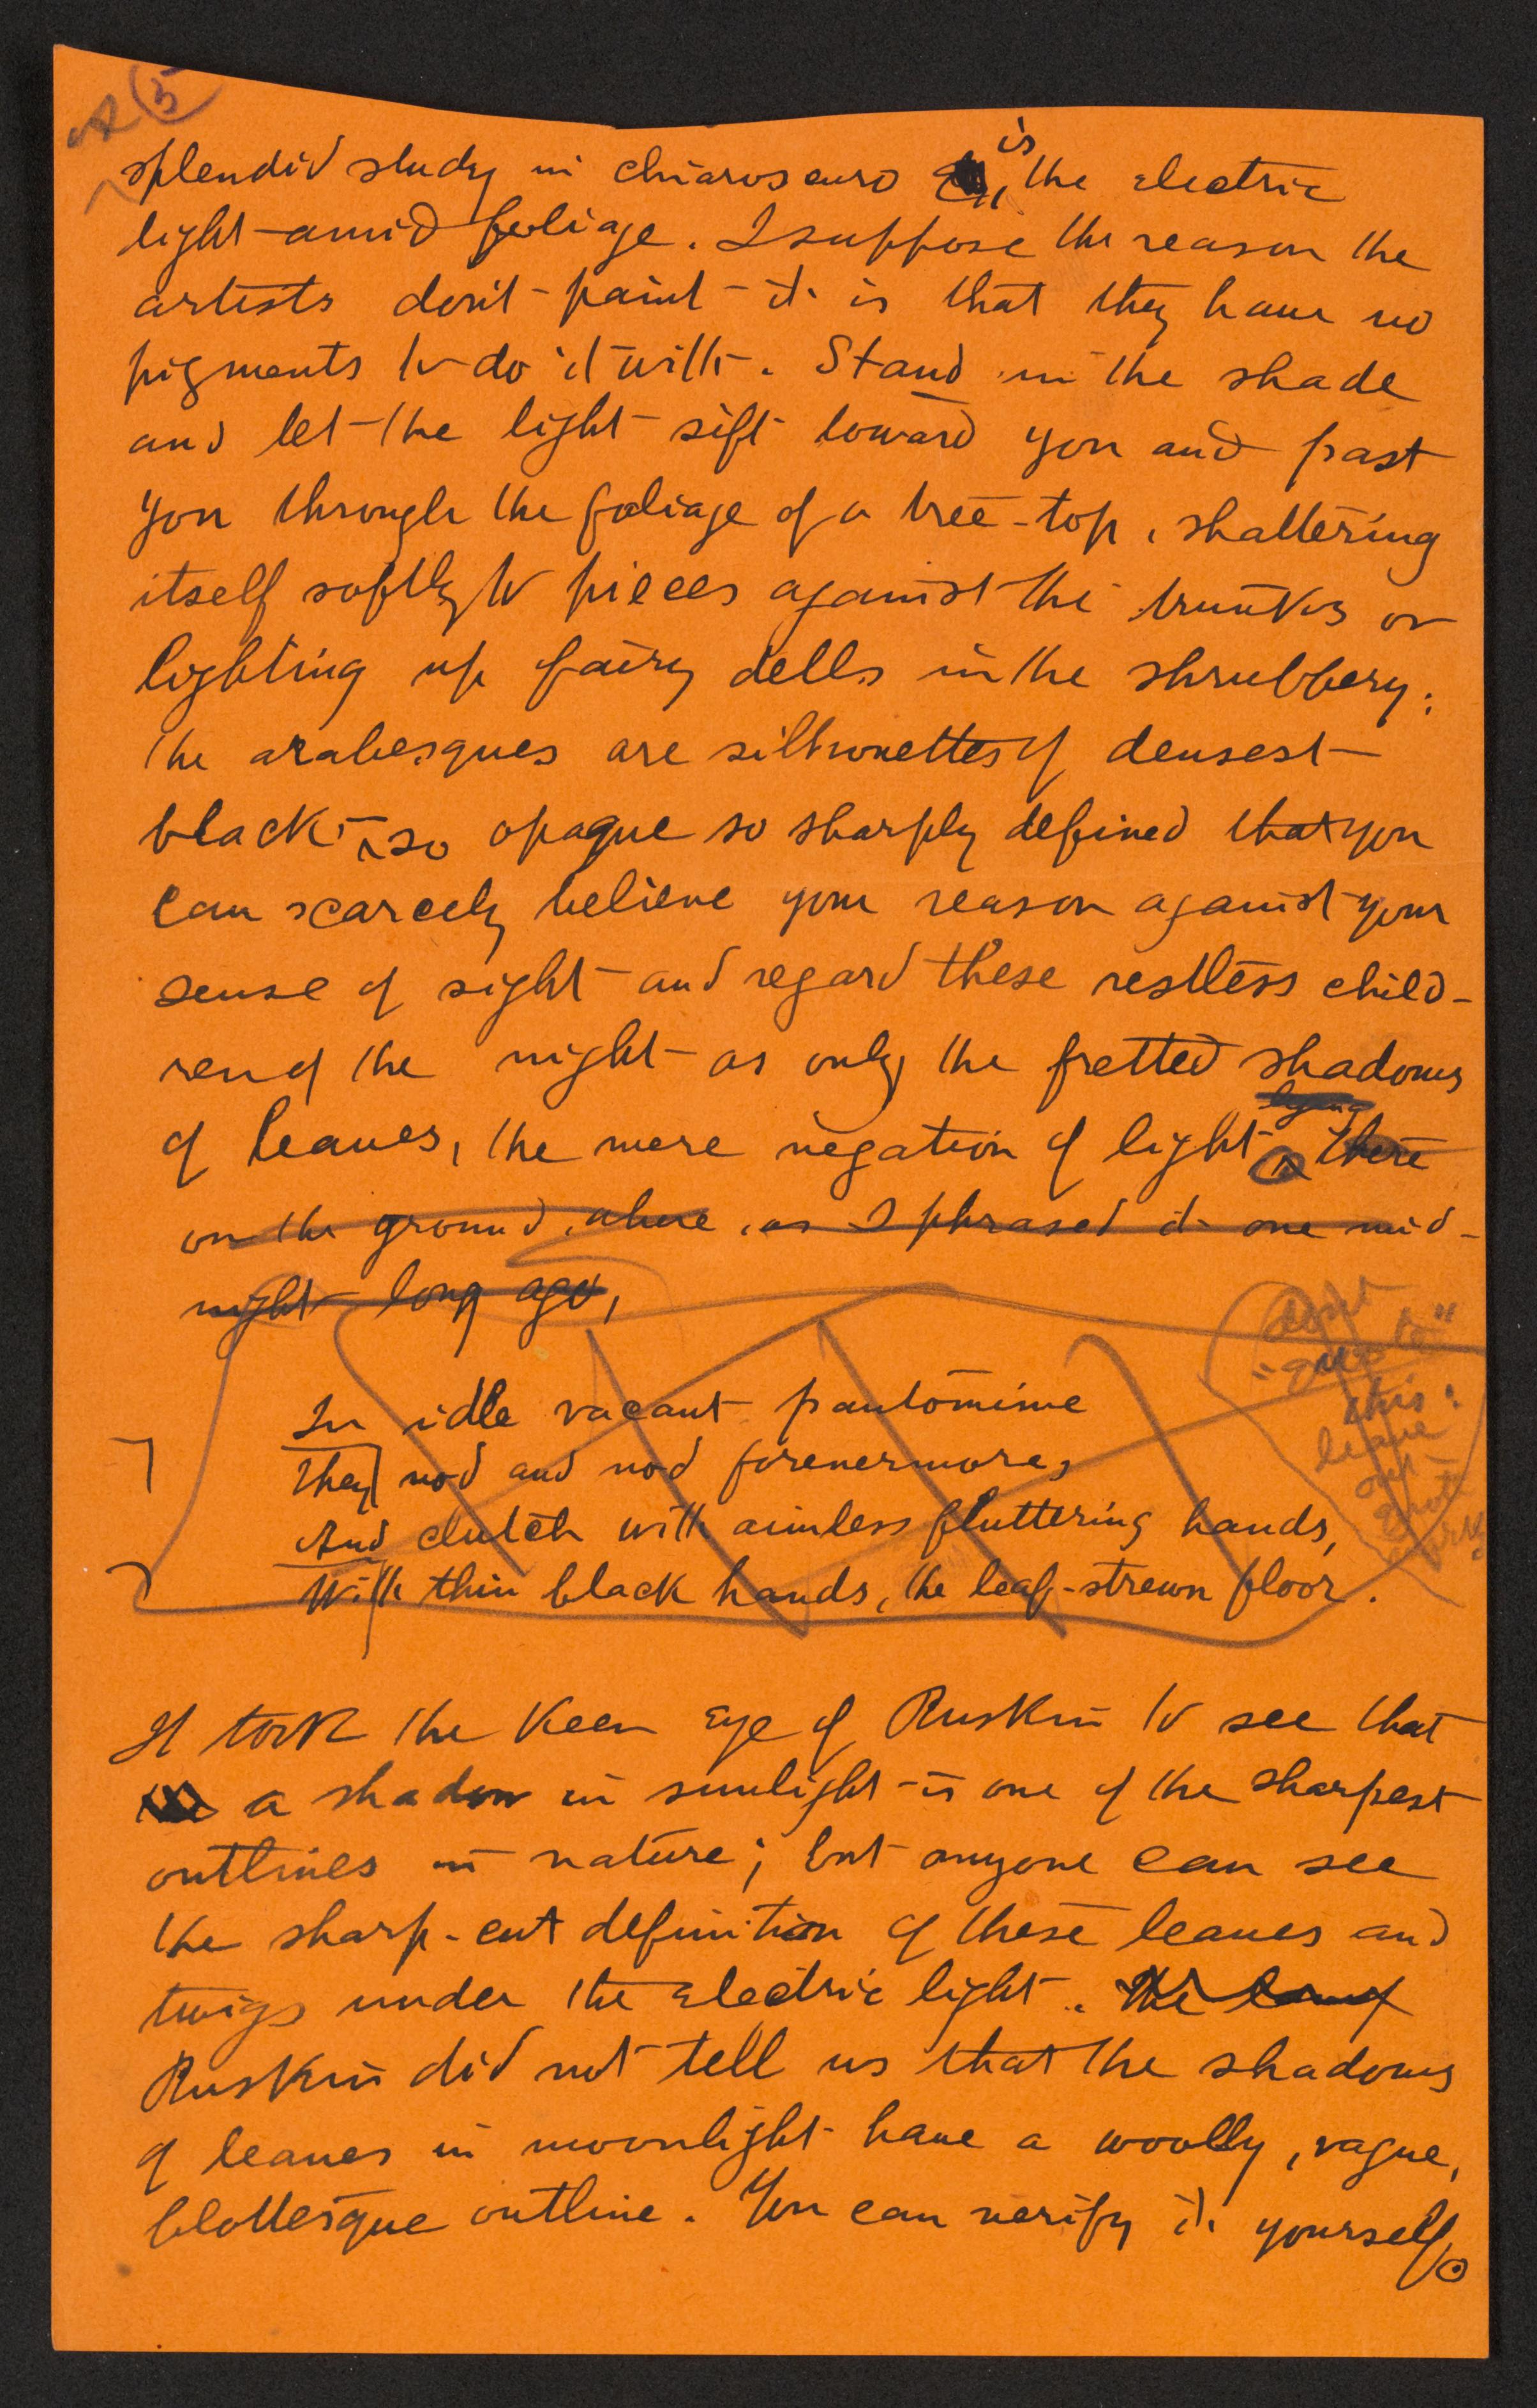 A 5
splendid study in chiaroscuro is the electric
light amid foliage. I suppose the reason the
artists don't paint it is that they have no
pigments to do it with. Stand in the shade
and let the light sift toward you and past
you through the foliage of a tree-top, shattering
itself softly to pieces against the trunks or
lighting up fairy dells in the shrubbery;
the arabesques are silhouettes of densest
black, so opaque so sharply defined that you
can scarcely believe your reason against your
sense of sight and regard these restless child-
ren of the night as only the fretted shadows
lying
of leaves, the mere negation of light there
on the ground, where, as I phrased it one mid-
night long ago,
don't
"quote"
this:
leave
off
quote
marks
In idle vacant pantomime
They nod and nod forevermore,
And clutch with aimless fluttering hands,
With thin black hands, the leaf-strewn floor.
It took the keen eye of Ruskin to see that
a shadow in sunlight is one of the sharpest
outlines in nature; but anyone can see
the sharp-cut definition of these leaves and
twigs under the electric light. The
Ruskin did not tell us that the shadows
of leaves in moonlight have a woolly, vague,
blottesque outline. You can verify it yourself.